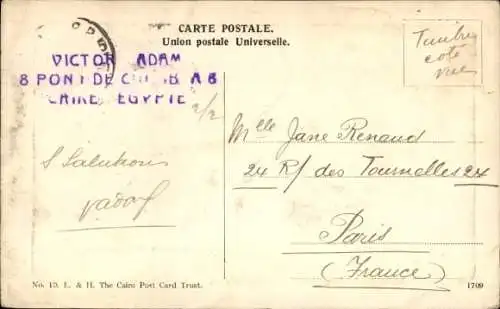 CARTE POSTALE.
Union postale Universelle.
Timbre
coté
vue
VICTOR ADAM
8 PONT DE 8
CAIRE EGYPTE
2/2
Mlle Jane Renaud
24 R/ des Tournelles 24
Paris
(France)
Salutions
No. 19. L. & H. The Cairo Post Card Trust.
1709